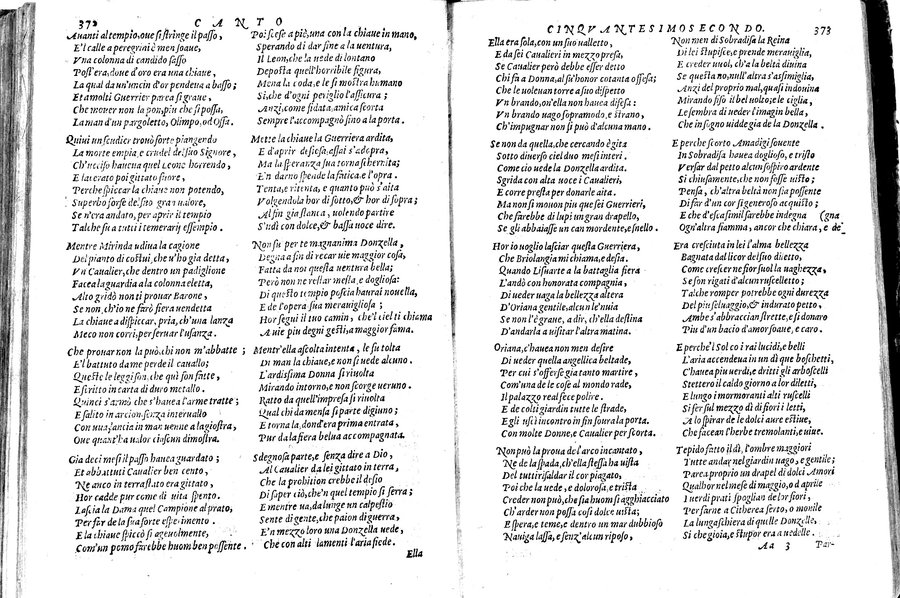 372 CANTO
Avanti al tempio, oue si stringe il passo,
E'l calle a peregrini è men soaue,
Vna colonna di candido sasso
Post'era, doue d'oro era una chiaue,
La qual da un'uncin d'or pendeua a basso;
Et a molti Guerrier parea sì graue,
Che mouer non la pon, piu che si possa,
La man d'un pargoletto, Olimpo, od Ossa.
Quiui un scudier trouò forte piangendo
La morte empia, e crudel del suo Signore,
Ch'ucciso haueua quel Leone horrendo,
E lacerato poi gittato fuore,
Perche spiccar la chiaue non potendo,
Superbo forse del suo gran ualore,
Se n'era andato, per aprir il tempio
Tal che fu a tutti i temerarij essempio.
Mentre Mirinda udiua la cagione
Del pianto di costui, che u'ho gia detta,
Vn Caualier, che dentro un padiglione
Facea la guardia a la colonna eletta,
Alto gridò non ti prouar Barone,
Se non, ch'io ne farò fiera uendetta
La chiaue a dispiccar, pria, ch'una lanza
Meco non corri, per seruar l'usanza.
Che prouar non la può, chi non m'abbatte;
E'l battuto dame perde il cauallo;
Queste le leggi son, che quì son fatte,
E scritto in carta di duro metallo.
Quinci s'armò che s'hauea l'arme tratte;
E salito in arcion senza interuallo
Con una lancia in man uenne a la giostra,
Oue quant'ha ualor ciascun dimostra.
Gia deci mesi il passo hauea guardato;
Et abbattuti Caualier ben cento,
Ne anco in terra stato era gittato;
Hor cadde pur come di uita spento.
Lascia la Dama quel Campione al prato,
Per far de la sua sorte esperimento.
E la chiaue spiccò sì ageuolmente,
Com'un pomo farebbe huom ben possente.
Poi scese a piè, una con la chiaue in mano,
Sperando di dar fine a la uentura,
Il Leon, che la uede di lontano
Deposta quell'horribile figura,
Mena la coda, e le si mostra humano
Sì, che d'ogni periglio l'assicura;
Anzi, come fidata, amica scorta
Sempre l'accompagnò fino a la porta.
Mette la chiaue la Guerriera ardita,
E d'aprir de si essa, assai s'adopra,
Ma la speranza sua torna schernita;
E'n darno spende la fatica, e l'opra.
Tenta, e ritenta, e quanto può s'aita
Volgendola hor di sotto, & hor di sopra;
Al fin gia stanca, uolendo partire
S'udì con dolce, & bassa uoce dire.
Non su per te magnanima Donzella,
Degna a fin di recar uie maggior cosa,
Fatta da noi questa uentura bella;
Però non ne restar mesta, e dogliosa:
Di questo tempio poscia haurai nouella,
E de l'opera sua merauigliosa;
Hor segui il tuo camin, che'l ciel ti chiama
A uie piu degni gesti, a maggior fama.
Mentr'ella ascolta intenta, le fu tolta
Di man la chiaue, e non si uede alcuno.
L'ardissima Donzella si riuolta
Mirando intorno, e non scorge ueruno.
Ratto da quell'impresa si riuolta
Qual chi da mensa si parte digiuno;
E torna la, dond'era prima entrata,
Pur da la fiera belua accompagnata.
Sdegnosa parte, e senza dire a Dio,
Al Caualier da lei gittato in terra,
Che la prohition crebbe il desio
Di saper ciò, che'n quel tempio si serra;
E mentre ua, da lunge un calpestio
Sente di gente, che paion di guerra,
E'n mezzo loro una Donzella uede,
Che con alti lamenti l'aria fiede.
Ella
CINQVANTESIMOSECONDO. 373
Ella era sola, con un suo ualletto,
E da sei Caualieri in mezzo presa,
Se Caualier però debbe esser detto
Chi fa a Donna, al su'honor cotanta offesa;
Che le uoleuan torre a suo dispetto
Vn brando, on'ella non hauea difesa:
Vn brando uago sopra modo, e strano,
Ch'impugnar non si può d'alcuna mano.
Se non da quella, che cercando è gita
Sotto diuerso ciel duo mesi interi.
Come ciò uede la Donzella ardita.
Sgrida con alta uoce i Caualieri,
E corre presta per donarle aita.
Ma non sì mosse piu que sei Guerrieri,
Che farebbe di lupi un gran drapello,
Se gli abbaiasse un can mordente, e snello.
Hor io uoglio lasciar questa Guerriera,
Che Briolangia mi chiama, e desia.
Quando Lisuarte a la battaglia fiera
L'andò con honorata compagnia,
Di ueder uaga la bellezza altera
D'Oriana gentile, alcun le nuia
Se non l'è graue, a dir, ch'ella destina
D'andarla a uisitar l'altra matina.
Oriana, c'hauea non men desire
Di ueder quella angelica beltade,
Per cui s'offerse gia tanto martire,
Com'una de le cose al mondo rade,
Il palazzo real fece polire.
E de colti giardin tutte le strade,
E gli uscì incontro in fin fuora la porta.
Con molte Donne, e Caualier per scorta.
Non può la proua de l'arco incantato,
Ne de la spada, ch'ella stessa ha uista
Del tutti risaldar il cor piagato,
Poi che la uede, e dolorosa, e trista
Creder non può, che sia huom sì agghiacciato
Ch'arder non possa così dolce uista;
E spera, e teme, e dentro un mar dubbioso
Nauiga lassa, e senz'alcun riposo,
Non men di Sobradisa la Reina
Di lei stupisce, e prende merauiglia,
E creder uuol, ch'a la beltà diuina
Se questa no, null'altra s'assimiglia,
Anzi del proprio mal, quasi indouina
Mirando fiso il bel uolto, e le ciglia,
Le sembra di ueder l'imagin bella,
Che in sogno uidde gia de la Donzella.
E perche scorto Amadigi souente
In Sobradisa hauea doglioso, e tristo
Versar dal petto alcun sospiro ardente
Sì chiusamente, che non fosse uisto;
Pensa, ch'altra beltà non sia possente
Di far d'un cor sì generoso acquisto;
E che d'esca simil sarebbe indegna (gna
Ogn'altra fiamma, ancor che chiara, e de
Era cresciuta in lei l'alma bellezza
Bagnata dal licor del suo diletto,
Come crescer ne fior suol la uaghezza,
Se son rigati d'alcun ruscelletto;
Tal che romper potrebbe ogni durezza
Del piu seluaggio, & indurato petto,
Ambe s'abbraccian strette, e si donaro
Piu d'un bacio d'amor soaue, e caro.
E perche'l Sol co i rai lucidi, e belli
L'aria accendeua in un dì que boschetti,
C'hauea piu uerdi, e dritti gli arboscelli
Stettero il caldo giorno a lor diletti,
E lungo i mormoranti alti ruscelli
Sì fer sul mezzo dì di fiori i letti,
A lo spirar de le dolci aure estiue,
Che facean l'herbe tremolanti, e uiue.
Tepido fatto il dì, l'ombre maggiori
Tutte andar nel giardin uago, e gentile;
Parea proprio un drapel di dolci Amori
Qual hor nel mese di maggio, o d'aprile
I uerdi prati spoglian de lor fiori,
Per farne a Citherea serto, o monile
La lunga schiera di quelle Donzelle,
Sì che gioia, e stupor era a uedelle.
Aa 3 Par-